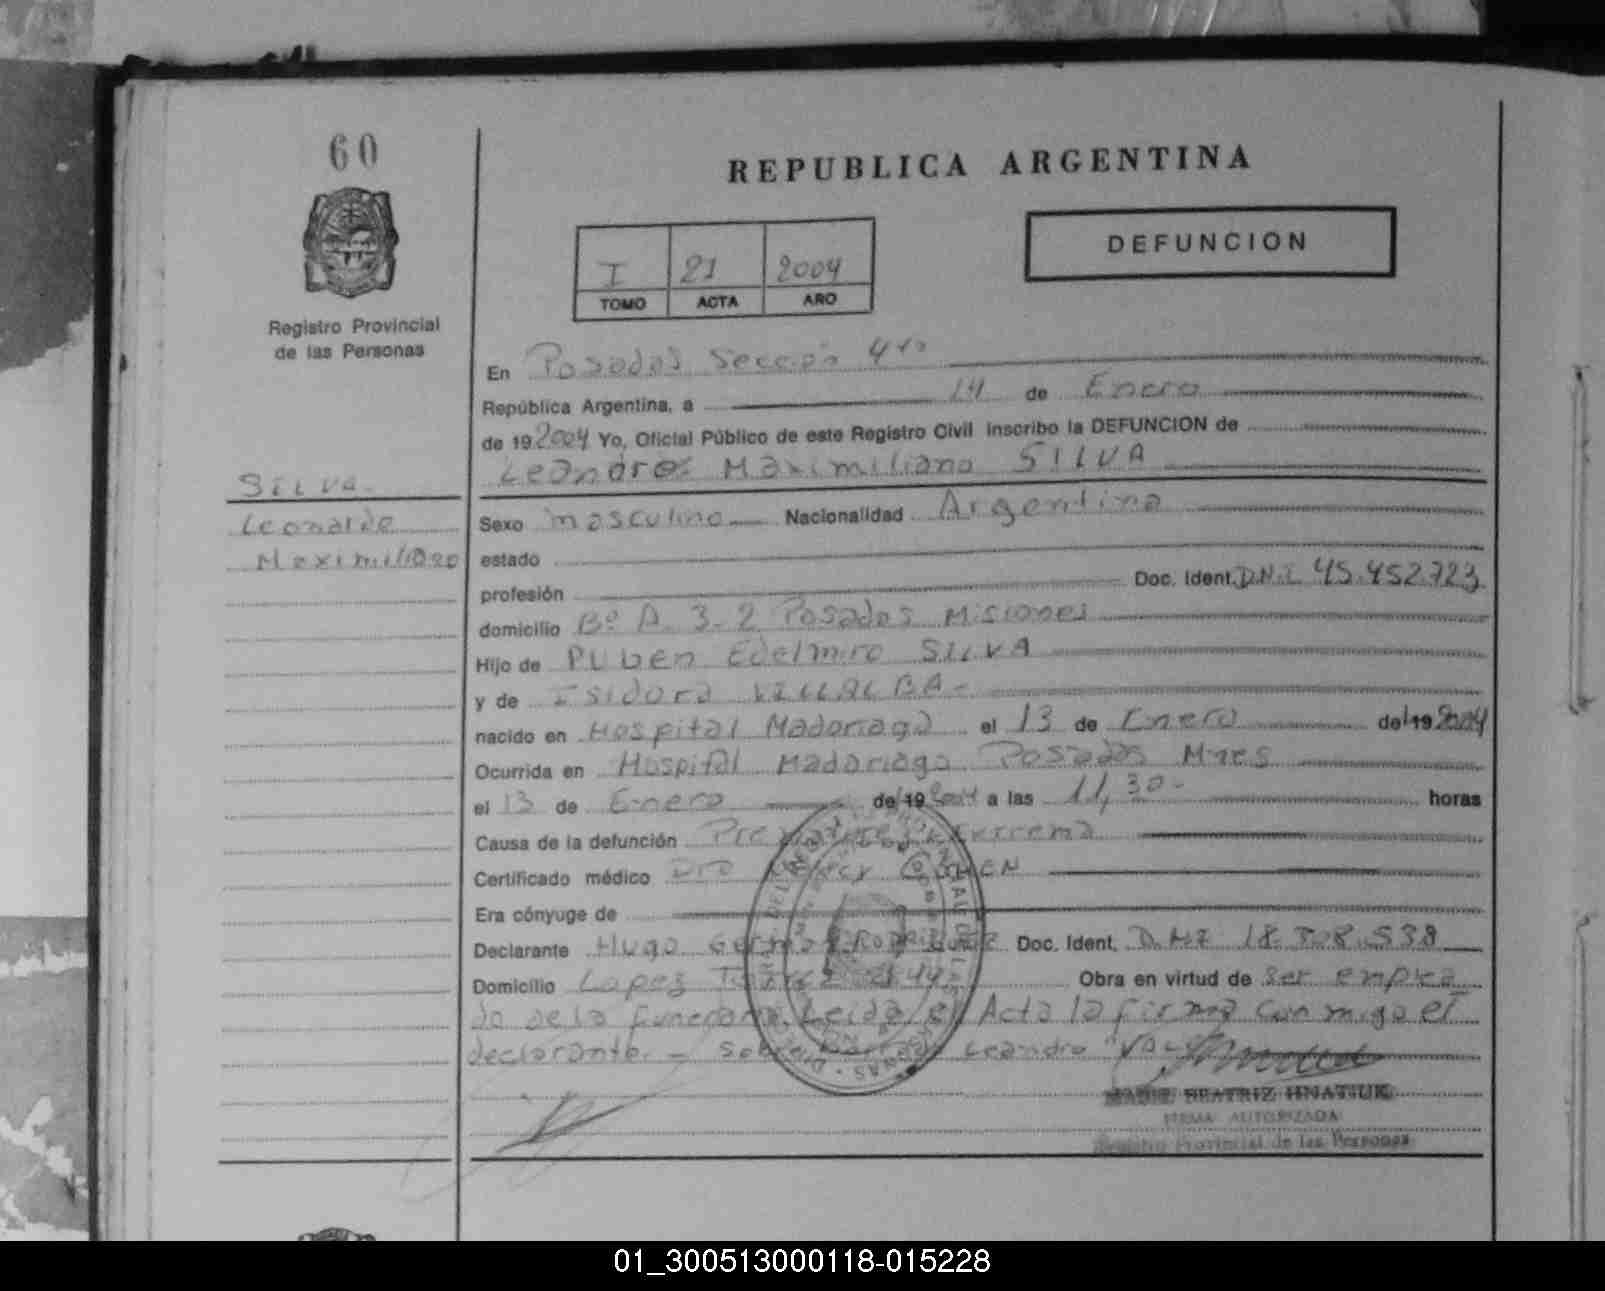 60
REPUBLICA ARGENTINA
DEFUNCION
I 21 2004
TOMO ACTA AÑO
Registro Provincial
de las Personas
En Posadas Sección 4ta
República Argentina, a 14 de Enero
de 19 2004 Yo, Oficial Público de este Registro Civil inscribo la DEFUNCION de
Leandro Maximiliano SILVA
SILVA-
Leonardo
Maximiliano
Sexo masculino Nacionalidad Argentina
estado
profesión Doc. Ident. D.N.I 45.452.723
domicilio Bº A 3-2 Posadas Misiones
Hijo de Ruben Edelmiro SILVA
y de Isidora VILLALBA-
nacido en Hospital Madariaga el 13 de Enero de 19 2004
Ocurrida en Hospital Madariaga Posadas Mnes
el 13 de Enero de 19 2004 a las 11,30- horas
Causa de la defunción Prematurez Extrema
Certificado médico Dra COHEN
Era cónyuge de
Declarante Hugo German Rodriguez Doc. Ident. D.N.I 18. .538
Domicilio Lopez Torres Obra en virtud de ser emplea
do de la funeraria. Leida el Acta la firma con migo el
declarante. - Sobre Leandro Va
BEATRIZ HNATIUK
FIRMA AUTORIZADA
Registro Provincial de las Personas
01_300513000118-015228